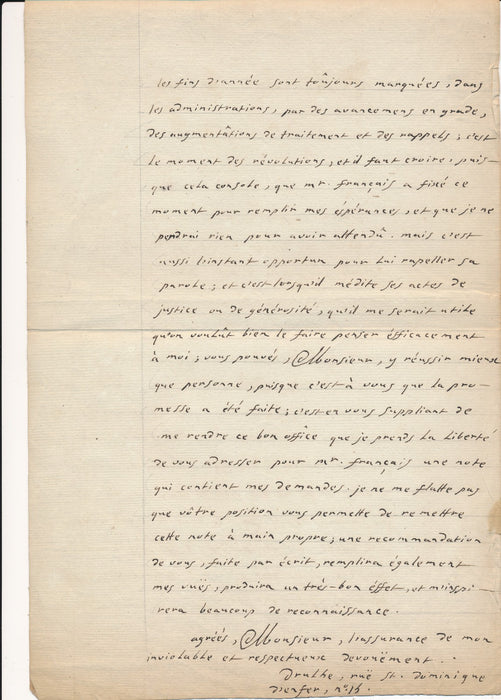 les fins d'année sont toûjours marquées, dans
les administrations, par des avancemens en grade,
des augmentâtions de traitement et des rappels; c'est
le moment des révolutions, et il faut croire, puis-
que cela console, que mr. français a fixé ce
moment pour remplir mes éspérances, et que je ne
perdrai rien pour avoir attendû. mais c'est
aussi l'instant opportun pour lui rapeller sa
parole; et c'est lorsqu'il médite ses actes de
justice ou de générosité, qu'il me serait utile
qu'on voulût bien le faire penser éfficacement
à moi; vous pouvés, Monsieur, y réussir mieux
que personne, puisque c'est à vous que la pro-
messe a été faite; c'est en vous suppliant de
me rendre ce bon office que je prends la Liberté
de vous adresser pour mr. français une note
qui contient mes demandes. je ne me flatte pas
que vôtre position vous permette de remettre
cette note à main propre; une recommandation
de vous, faite par écrit, remplira également
mes vuës, produira un très-bon éffet, et m'inspi-
rera beaucoup de reconnaissance.
agréés, Monsieur, l'assurance de mon
inviolable et respectueux devouëment.
ruë st. dominique
d'enfer, n.°